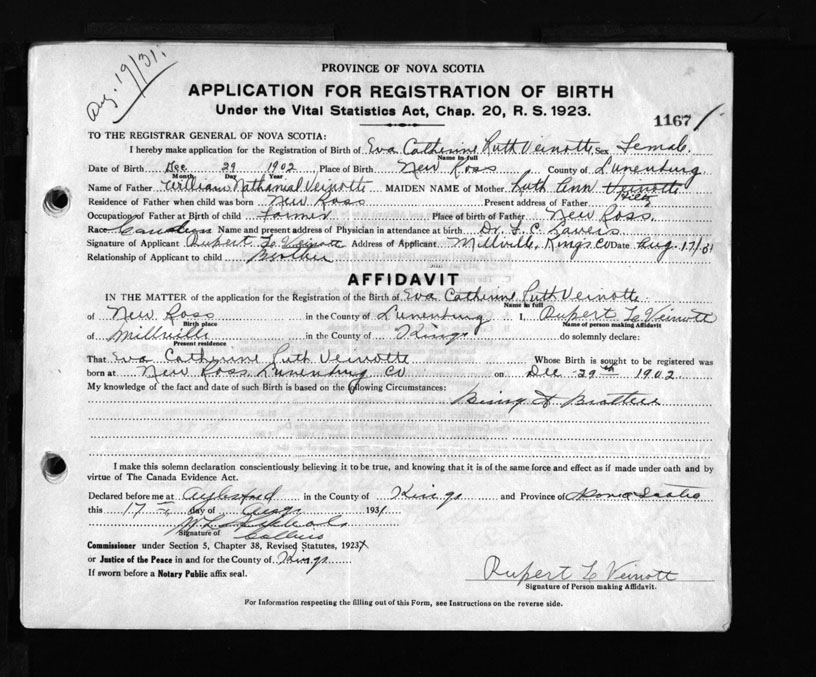 Aug. 19/31.
PROVINCE OF NOVA SCOTIA
APPLICATION FOR REGISTRATION OF BIRTH
Under the Vital Statistics Act, Chap. 20, R. S. 1923.
1167
TO THE REGISTRAR GENERAL OF NOVA SCOTIA:
I hereby make application for the Registration of Birth of Eva Catherine Ruth Veinotte Sex Female.
Name in full
Date of Birth Dec 29 1902 Place of Birth New Ross County of Lunenburg
Month Day Year
Name of Father William Nathanial Veinotte MAIDEN NAME of Mother Ruth Ann Veinotte Hiltz
Residence of Father when child was born New Ross Present address of Father
Occupation of Father at Birth of child Farmer Place of birth of Father New Ross.
Race Canadian Name and present address of Physician in attendance at birth Dr. Lavers
Signature of Applicant Rupert Veinott Address of Applicant Millville, Kings Co Date Aug. 17/31
Relationship of Applicant to child Brother
AFFIDAVIT
IN THE MATTER of the application for the Registration of the Birth of Eva Catherine Ruth Veinotte
Name in full
of New Ross in the County of Lunenburg I, Rupert Veinott
Birth place Name of person making Affidavit
of Millville in the County of Kings do solemnly declare:
Present residence
That Eva Catherine Ruth Veinotte Whose Birth is sought to be registered was
born at New Ross Lunenburg Co on Dec 29th 1902.
My knowledge of the fact and date of such Birth is based on the following Circumstances:
Being A Brother
I make this solemn declaration conscientiously believing it to be true, and knowing that it is of the same force and effect as if made under oath and by
virtue of The Canada Evidence Act.
Declared before me at Aylesford in the County of Kings and Province of Nova Scotia
this 17 day of Aug 1931
Signature of
Commissioner under Section 5, Chapter 38, Revised Statutes, 1923
or Justice of the Peace in and for the County of Kings
If sworn before a Notary Public affix seal.
Rupert Veinott
Signature of Person making Affidavit.
For Information respecting the filling out of this Form, see Instructions on the reverse side.